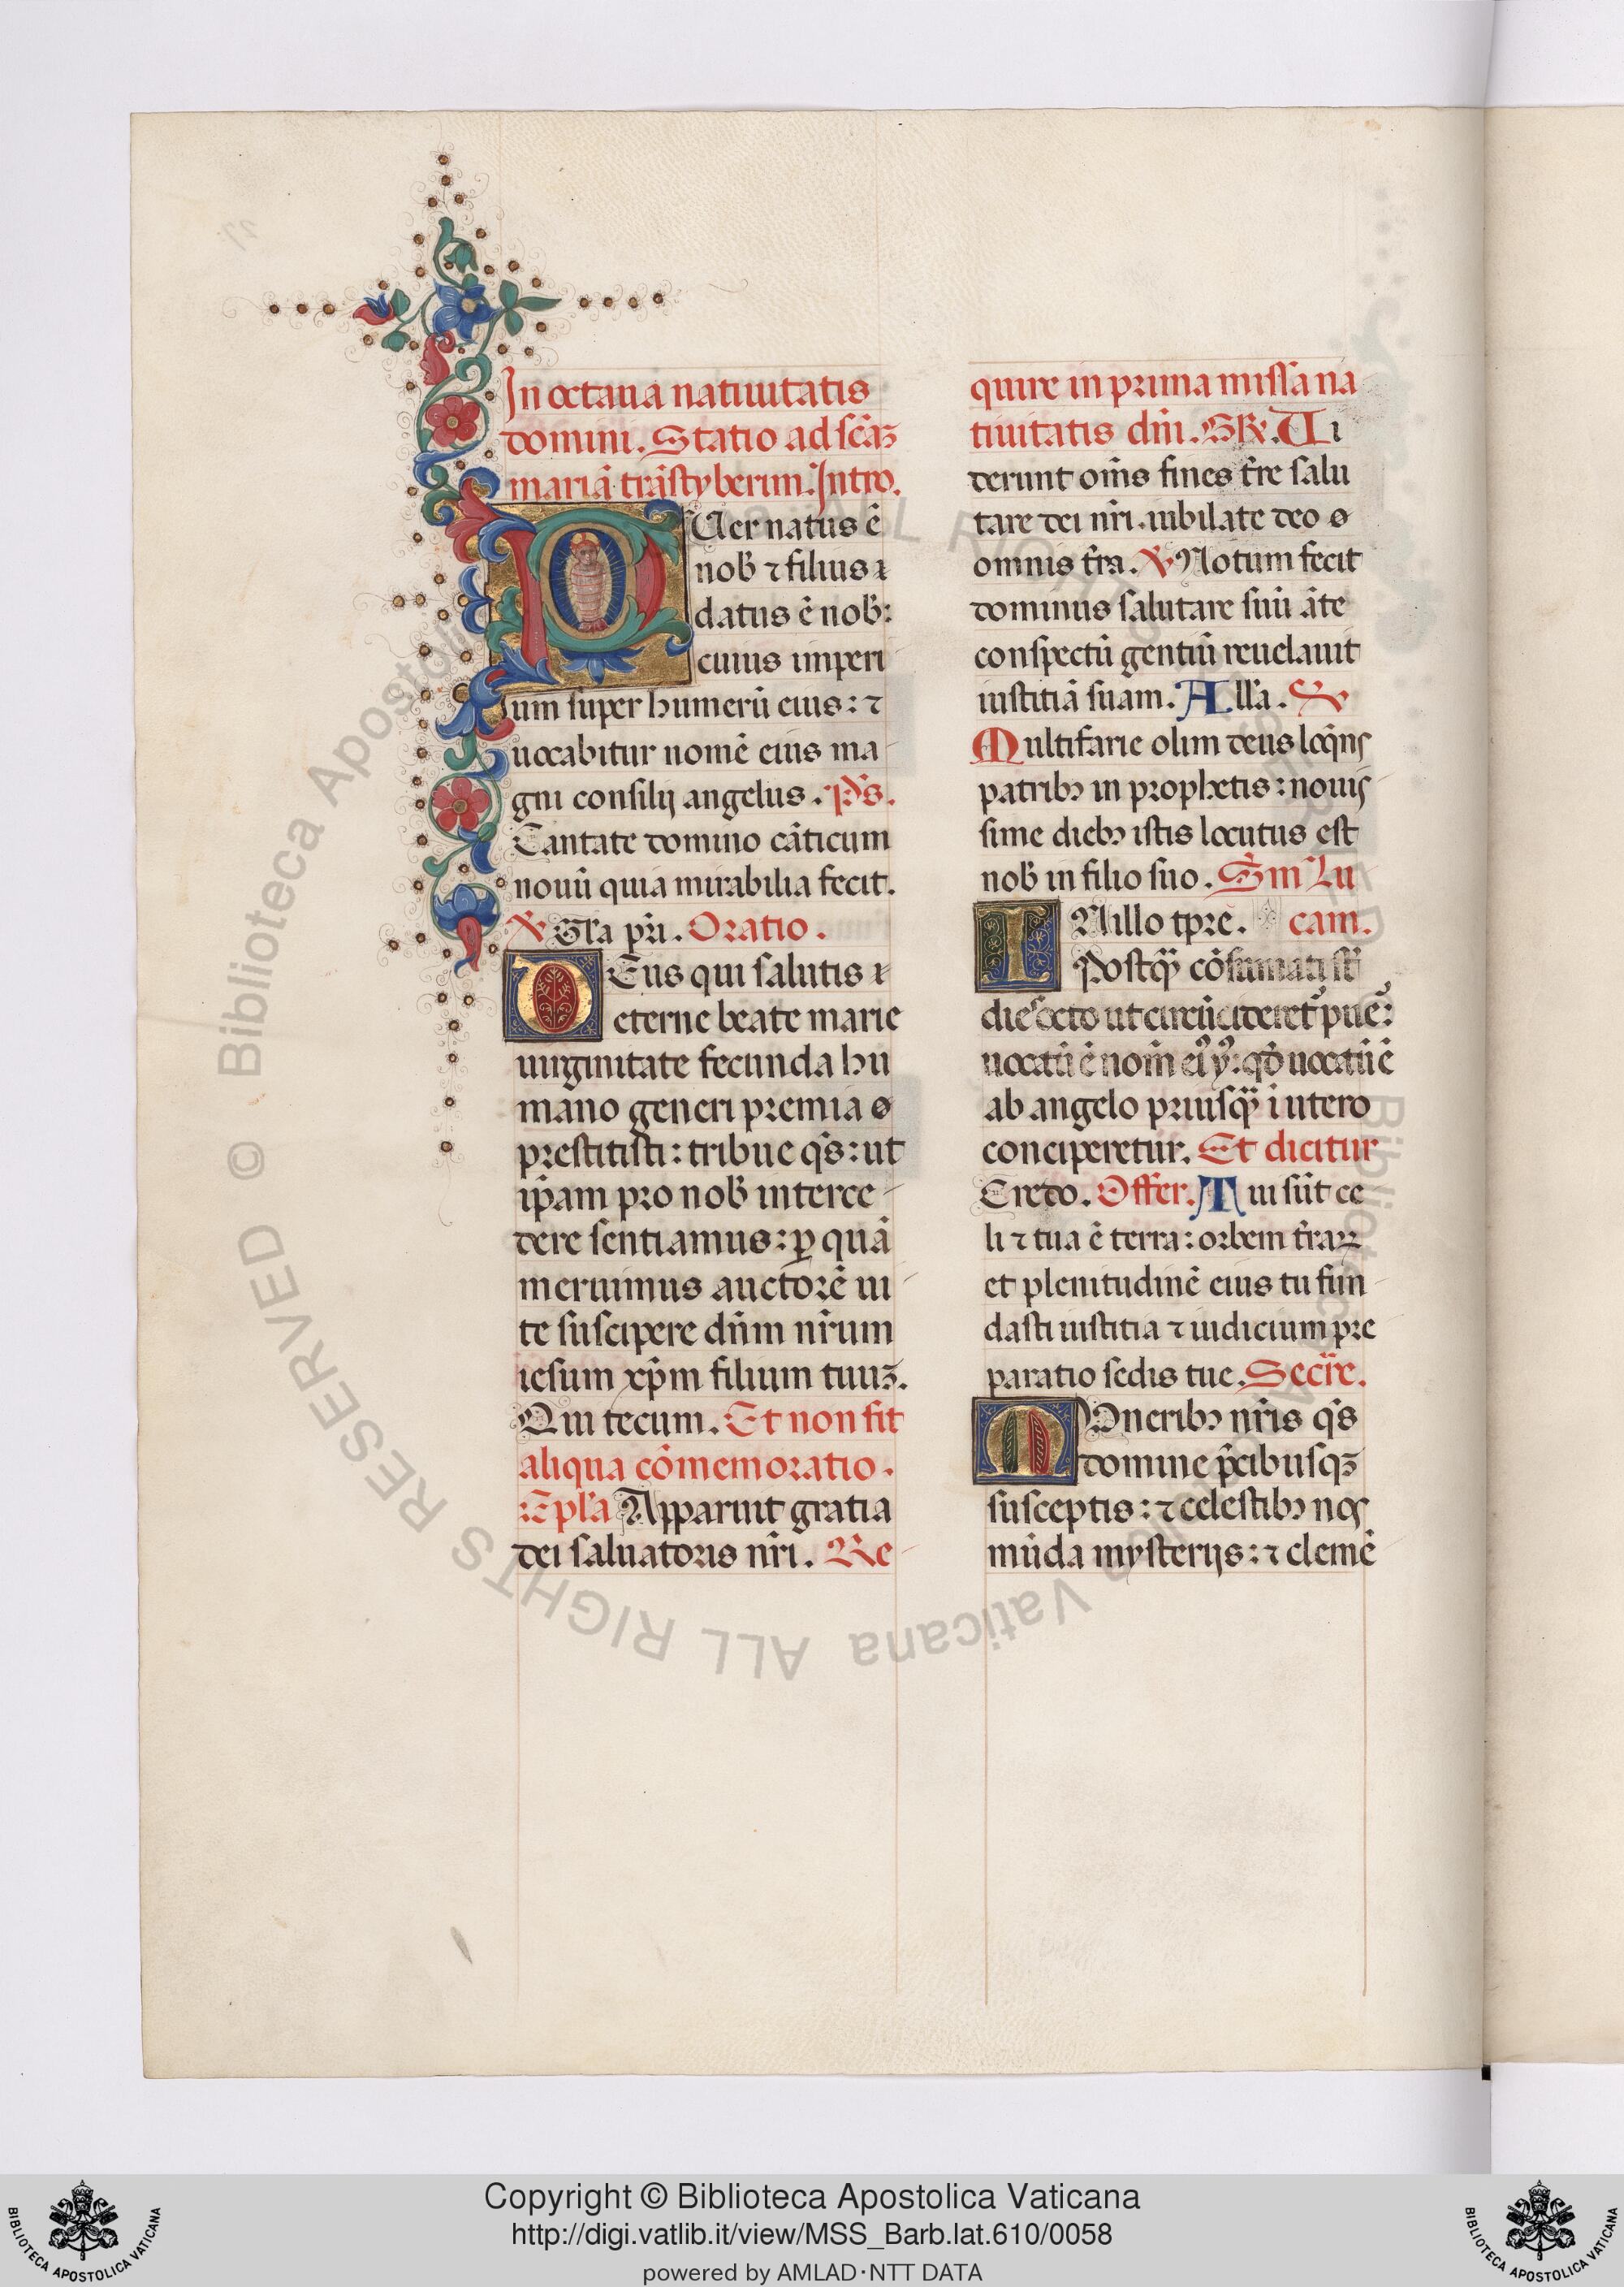 In octaua natiuitatis
domini. Statio ad scāꝫ
mariā trāstyberim. Intro.
PUer natus ē
nob̄ ⁊ filius
datus ē nob̄:
cuius imperi
um super humerū eius: ⁊
uocabitur nomē eius ma
gni consilij angelus. p̄s.
Cantate domino cāticum
nouū quia mirabilia fecit.
℣ Gl̄a pr̄i. Oratio.
DEus qui salutis
eterne beate marie
uirginitate fecunda hu
mano generi premia
prestitisti: tribue qs̄: ut
ip̄am pro nob̄ interce
dere sentiamus: ꝑ quā
meruimus auctorē ui
te suscipere dn̄m nr̄um
iesum xp̄m filium tuuꝫ.
Qui tecum. Et non fit
aliqua cōmemoratio.
Epl̄a Apparuit gratia
dei saluatoris nr̄i. Re
quire in prima missa na
tiuitatis dn̄i. GR̄. Ui
derunt om̄s fines t̄re salu
tare dei nr̄i. iubilate deo
omnis t̄ra. ℣ Notum fecit
dominus salutare suū āte
conspectū gentiū reuelauit
iustitiā suam. All̄a. ℣
Multifarie olim deus loq̄ns
patribꝫ in prophetis: nouis
sime diebꝫ istis locutus est
nob̄ in filio suo. Sm̄ Lu
IN illo tp̄re. cam.
Postq̄ cōsumati st̄
dies octo ut circūcideret᷑ puer:
uocatū ē nom̄ eiꝰ yꝰ: qd̄ uocatū ē
ab angelo priusq̄ i utero
conciperetur. Et dicitur
Credo. Offer. Tui sūt ce
li ⁊ tua ē terra: orbem t̄raꝝ
et plenitudinē eius tu fun
dasti iustitia ⁊ iudicium pre
paratio sedis tue. Secr̄e.
MUneribꝫ nr̄is qs̄
domine p̄cibusqꝫ
susceptis: ⁊ celestibꝫ nos
mūda mysterijs: ⁊ clemē
© Biblioteca Apostolica Vaticana ALL RIGHTS RESERVED
Copyright © Biblioteca Apostolica Vaticana
http://digi.vatlib.it/view/MSS_Barb.lat.610/0058
powered by AMLAD·NTT DATA
BIBLIOTECA APOSTOLICA VATICANA
BIBLIOTECA APOSTOLICA VATICANA